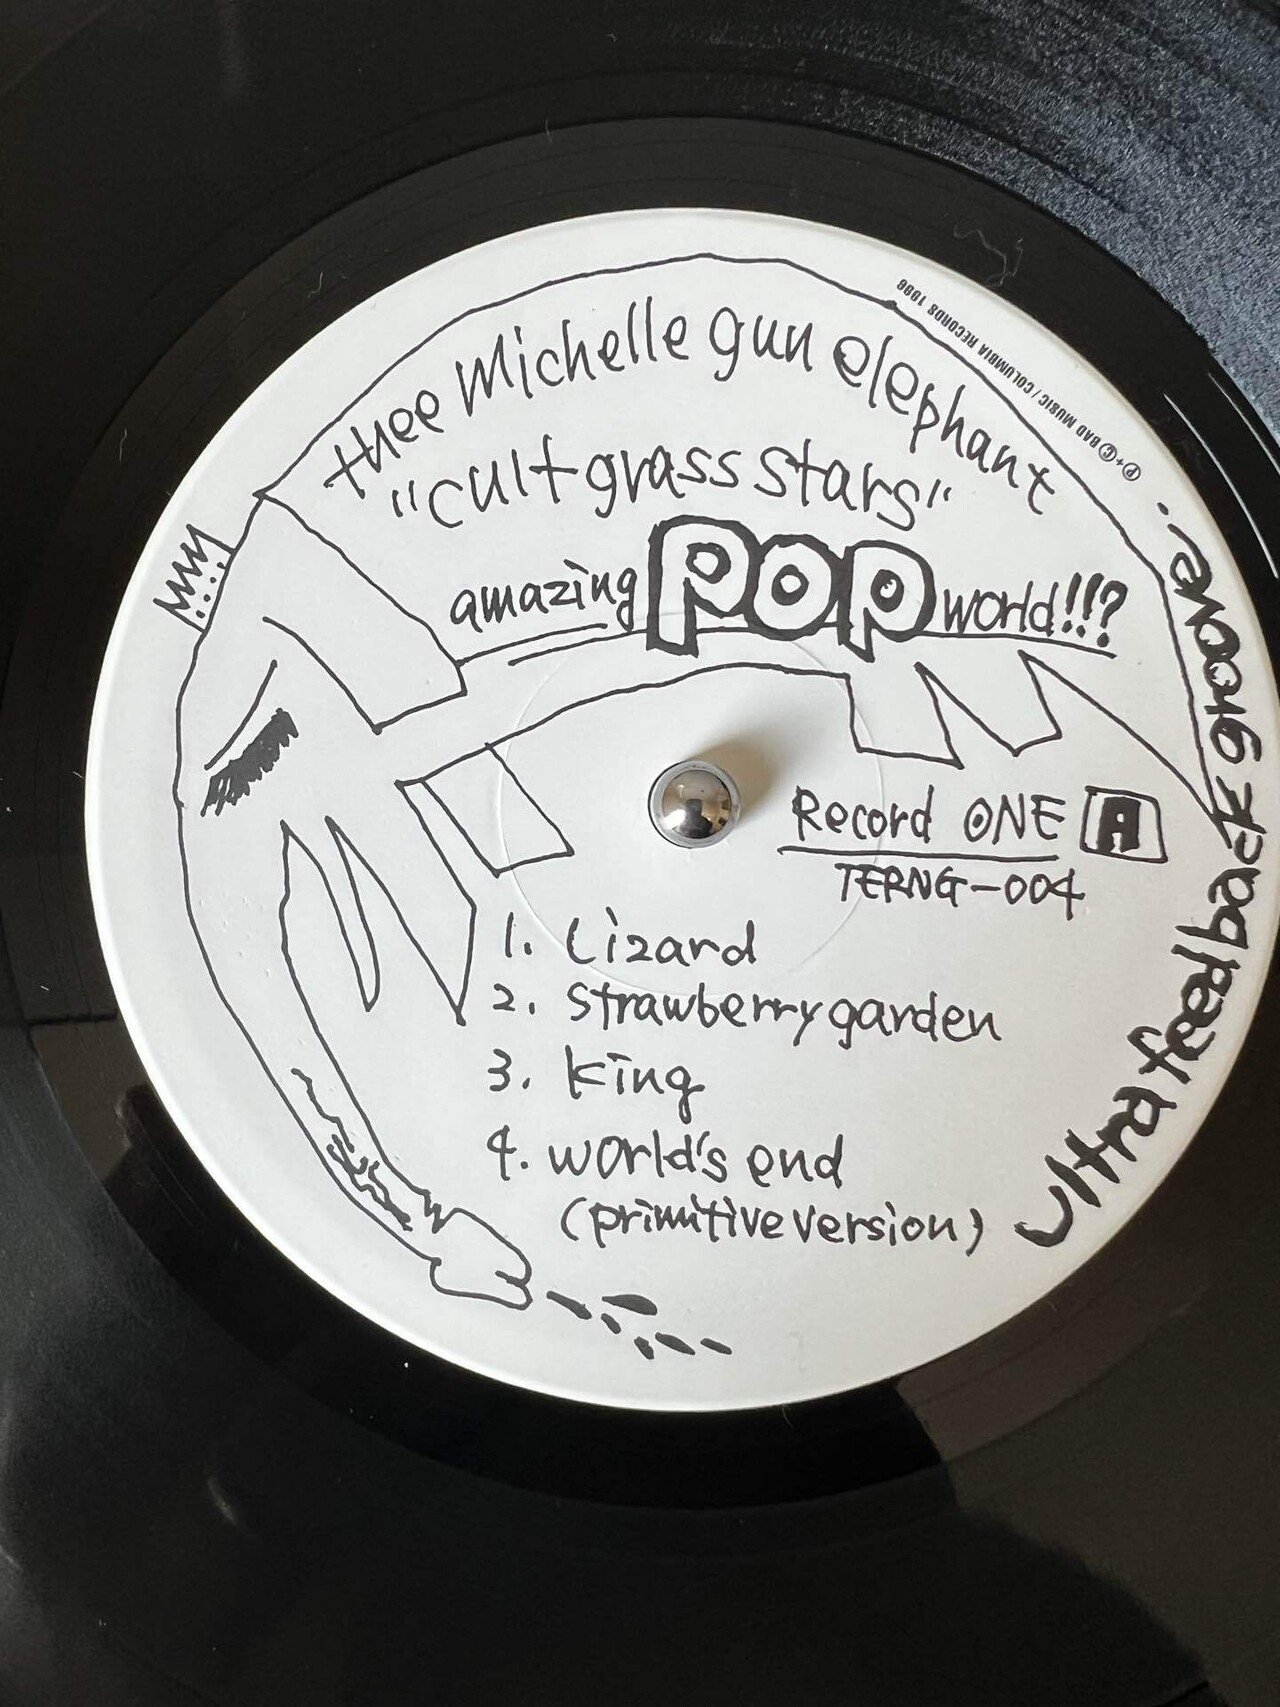 thee Michelle gun elephant
"cult grass stars"
amazing POP world!!!?
Record ONE A
TERNG-004
1. Lizard
2. strawberry garden
3. King
4. world's end
(primitive version)
ultra feedback groove.
℗+© BAD MUSIC / COLUMBIA RECORDS 1996